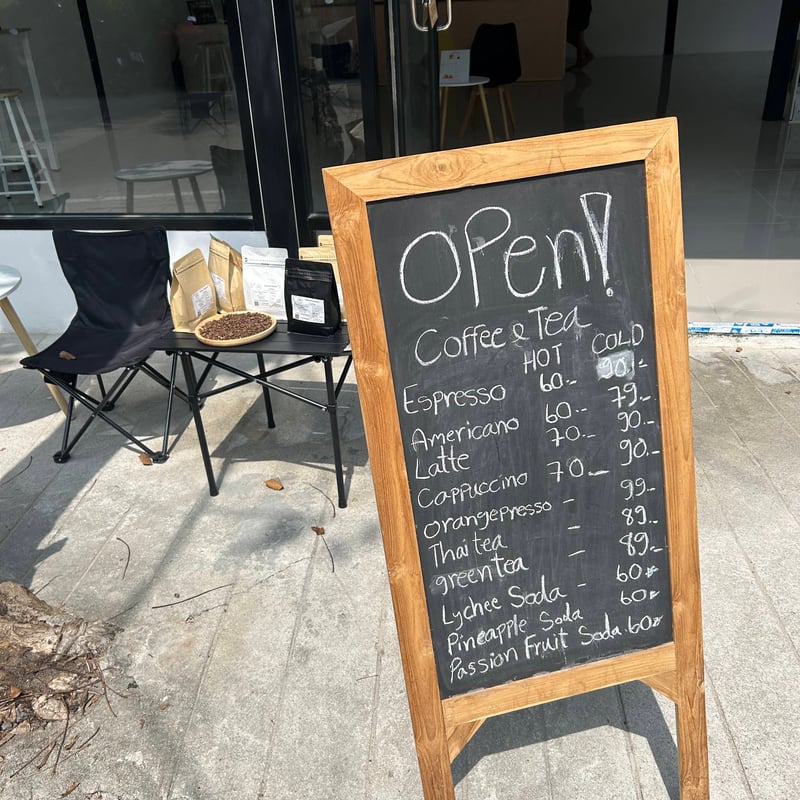 OPen!
Coffee & Tea
HOT COLD
Espresso 60.- 90.-
Americano 60.- 79.-
Latte 70.- 90.-
Cappuccino 70.- 90.-
Orangepresso - 99.-
Thai tea - 89.-
green tea - 89.-
Lychee Soda - 60.-
Pineapple Soda 60.-
Passion Fruit Soda 60.-